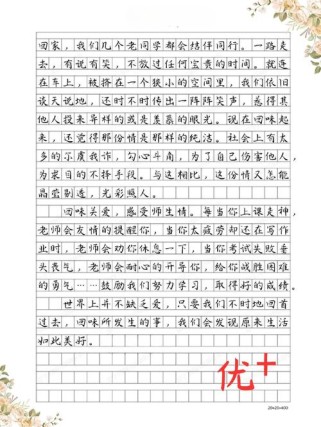 回家，我们几个老同学都会结伴同行。一路走
去，有说有笑，不放过任何宝贵的时间。就连
在车上，被挤在一个狭小的空间里，我们依旧
谈天说地，还时不时传出一阵阵笑声，惹得其
他人投来异样的或是羡慕的眼光。现在回味起
来，还觉得那份情是那样的纯洁。社会上有太
多的尔虞我诈，勾心斗角，为了自己伤害他人，
为求目的不择手段。与这相比，这份情又怎能
晶莹剔透，光彩照人。
回味关爱，感受师生情。每当你上课走神，
老师会友情的提醒你，当你太疲劳却还在写作
业时，老师会劝你休息一下，当你考试失败垂
头丧气，老师会耐心的开导你，给你战胜困难
的勇气……鼓励我们努力学习，取得好的成绩。
世界上并不缺乏爱，只要我们不时地回首
过去，回味所发生的事，我们会发现原来生活
如此美好。
优+
20×20=400